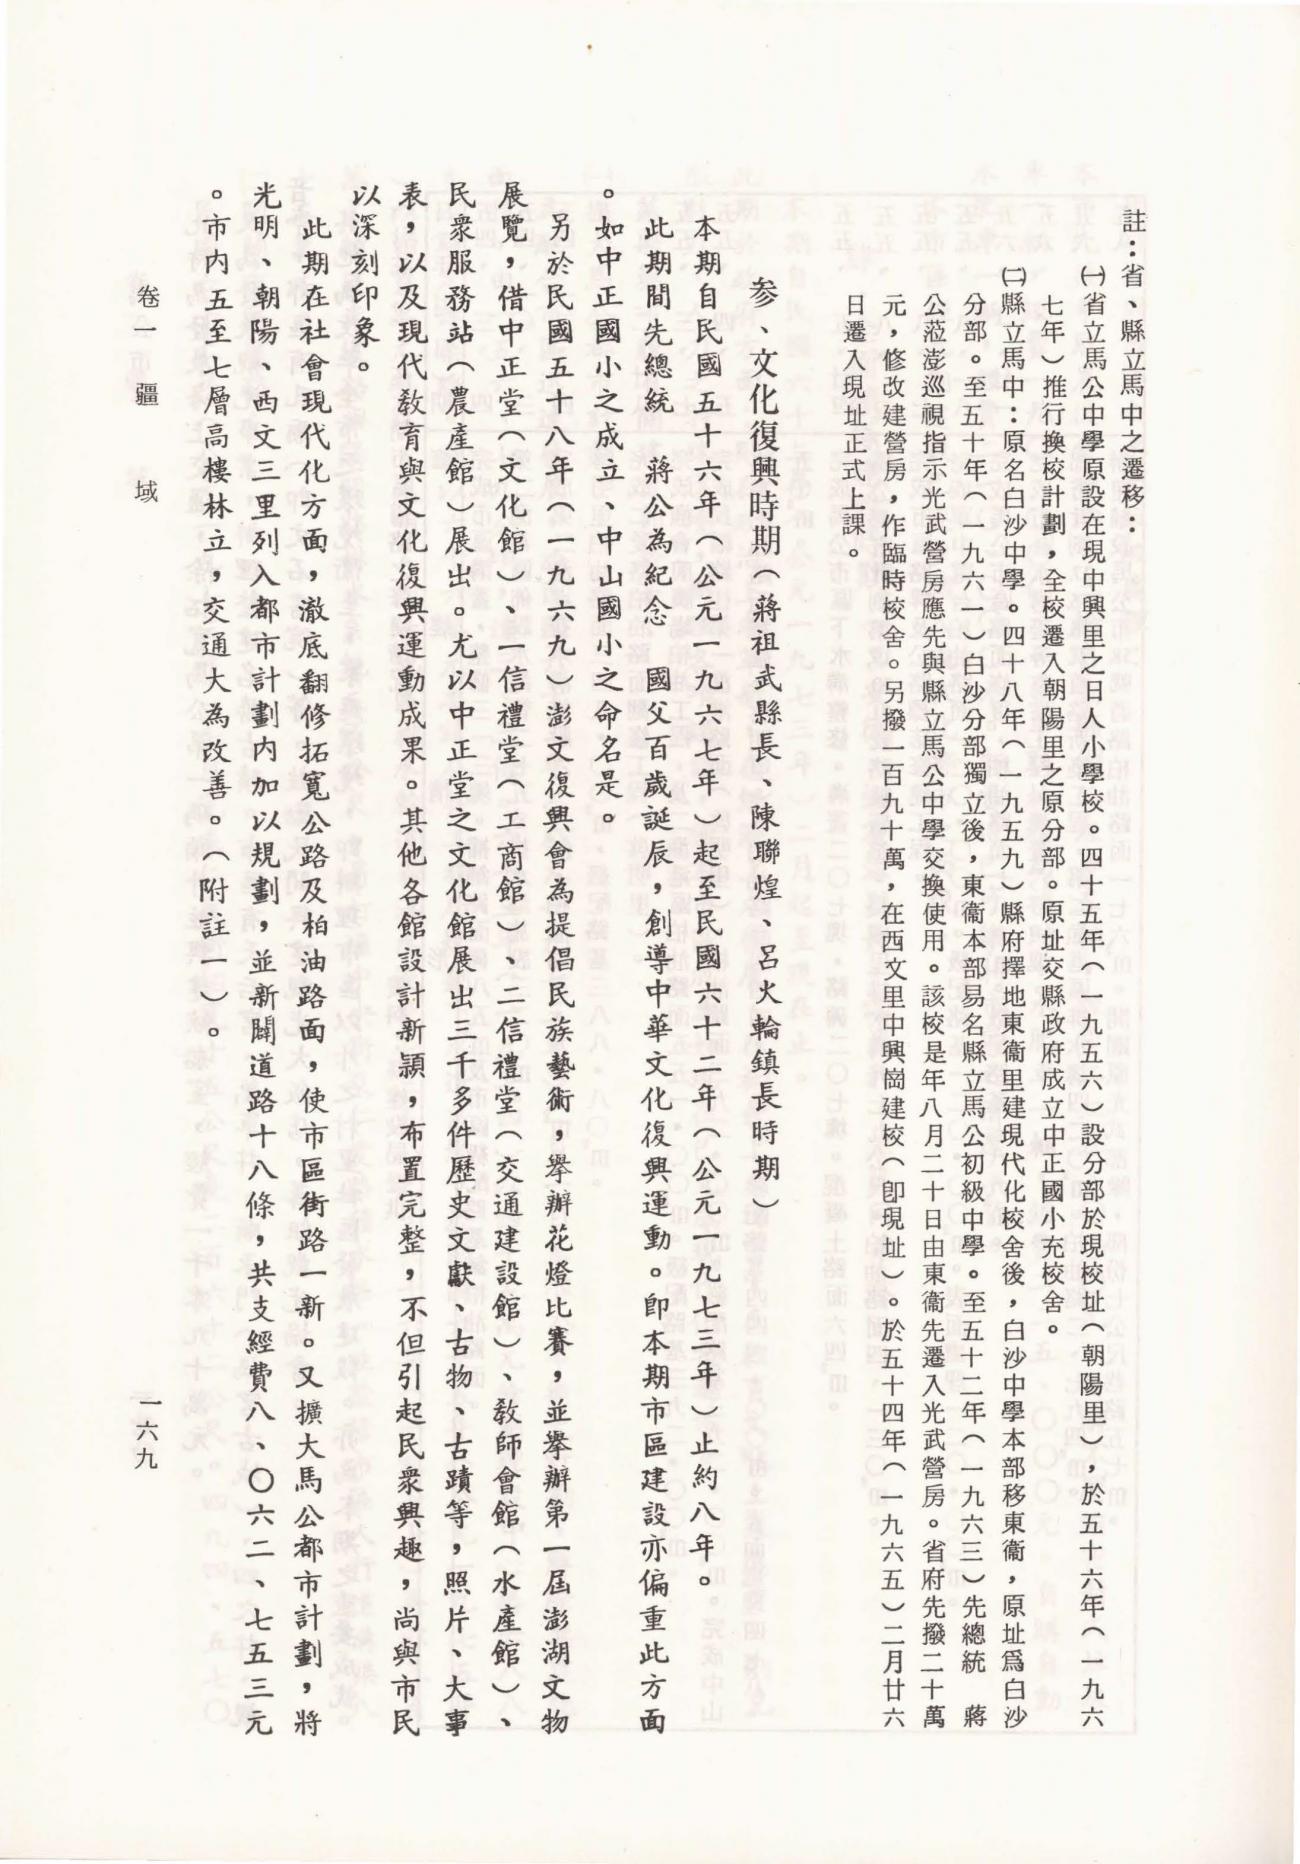 註：省、縣立馬中之遷移：
㈠省立馬公中學原設在現中興里之日人小學校。四十五年（一九五六）設分部於現校址（朝陽里），於五十六年（一九六
七年）推行換校計劃，全校遷入朝陽里之原分部。原址交縣政府成立中正國小充校舍。
㈡縣立馬中：原名白沙中學。四十八年（一九五九）縣府擇地東衞里建現代化校舍後，白沙中學本部移東衞，原址爲白沙
分部。至五十年（一九六一）白沙分部獨立後，東衞本部易名縣立馬公初級中學。至五十二年（一九六三）先總統　蔣
公蒞澎巡視指示光武營房應先與縣立馬公中學交換使用。該校是年八月二十日由東衞先遷入光武營房。省府先撥二十萬
元，修改建營房，作臨時校舍。另撥一百九十萬，在西文里中興崗建校（卽現址）。於五十四年（一九六五）二月廿六
日遷入現址正式上課。
参、文化復興時期（蔣祖武縣長、陳聯煌、呂火輪鎮長時期）
本期自民國五十六年（公元一九六七年）起至民國六十二年（公元一九七三年）止約八年。
此期間先總統　蔣公為紀念　國父百歲誕辰，創導中華文化復興運動。卽本期市區建設亦偏重此方面
。如中正國小之成立、中山國小之命名是。
另於民國五十八年（一九六九）澎文復興會為提倡民族藝術，舉辦花燈比賽，並舉辦第一屆澎湖文物
展覽，借中正堂（文化館）、一信禮堂（工商館）、二信禮堂（交通建設館）、教師會館（水產館）、
民衆服務站（農產館）展出。尤以中正堂之文化館展出三千多件歷史文獻、古物、古蹟等，照片、大事
表，以及現代教育與文化復興運動成果。其他各館設計新穎，布置完整，不但引起民衆興趣，尚與市民
以深刻印象。
此期在社會現代化方面，澈底翻修拓寬公路及柏油路面，使市區街路一新。又擴大馬公都市計劃，將
光明、朝陽、西文三里列入都市計劃內加以規劃，並新闢道路十八條，共支經費八、〇六二、七五三元
。市內五至七層高樓林立，交通大為改善。（附註一）。
卷一　疆　域
一六九